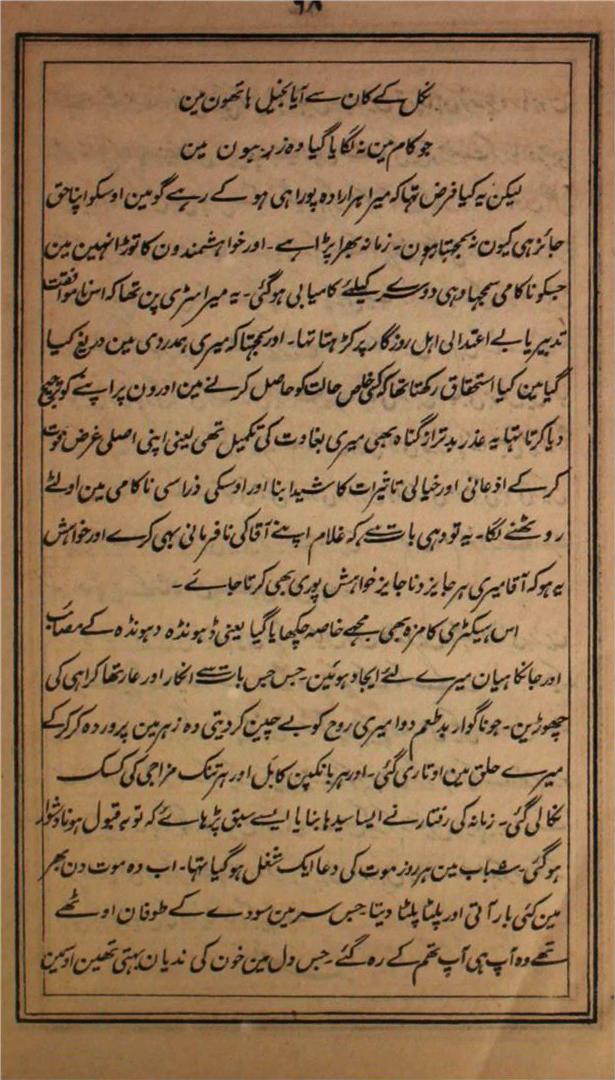 ۶۸
نکل کے کان سے آیا بخیل ہاتھون مین
جو کام مین نہ لگایا گیا وہ زر ہون مین
لیکن یہ کیا فرض تہا کہ میرا ہر ارادہ پورا ہی ہو کے رہے گو مین اوسکو اپنا حق
جائز ہی کیون نہ سمجہتا ہون۔ زمانہ بھرا پڑا ہے۔ اور خواہشمندون کا توڑا نہین مین
جسکو ناکامی سمجہا وہی دوسرے کیلئے کامیابی ہوگئی۔ یہ میرا سڑی پن تھا کہ اس ناموافقت
تدبیر یا بے اعتدالی اہل روزگار پر کڑہتا تہا۔ اور سمجہتا کہ میری ہمدردی مین دریغ کیا
گیا مین کیا استحقاق رکھتا تھا کہ کسی خاص حالت کو حاصل کرنے مین اورون پر اپنے کو ترجیح
دیا کرتا تہا یہ عذر بدتر از گناہ بھی میری بغاوت کی تکمیل تھی یعنی اپنی اصلی غرض فوت
کر کے اذعانی اور خیالی تاثیرات کا شیدا بنا اور اوسکی ذراسی ناکامی مین اولٹے
روٹھنے لگا۔ یہ تو وہی بات ہے کہ غلام اپنے آقا کی نافرمانی بہی کرے اور خواہش
یہ ہو کہ آقا میری ہر جایز و ناجایز خواہش پوری بھی کرتا جائے۔
اس ہیکڑی کا مزہ بھی مجھے خاصہ چکھایا گیا یعنی ڈہونڈہ دہونڈہ کے مصائب
اور جانکاہیان میرے لئے ایجاد ہوئین۔ جس جس بات سے انکار اور عار تھا کرا ہی کی
چھوڑین۔ جو ناگوار بدطعم دوا میری روح کو بے چین کردیتی وہ زہر مین پروردہ کرکرکے
میرے حلق مین اوتاری گئی۔ اور ہر بانکپن کا بل اور ہر تنک مزاجی کی کسک
نکالی گئی۔ زمانہ کی رفتار نے ایسا سیدہا بنایا ایسے سبق پڑہائے کہ توبہ قبول ہونا دشوار
ہوگئی۔ شباب مین ہر روز موت کی دعا ایک شغل ہوگیا تہا۔ اب وہ موت دن بھر
مین کئی بار آتی اور پلٹا پلٹا دیتا جس سر مین سودے کے طوفان اوٹھے
تھے وہ آپ ہی آپ تھم کے رہ گئے۔ جس دل مین خون کی ندیان بہتی تھین اوسمین